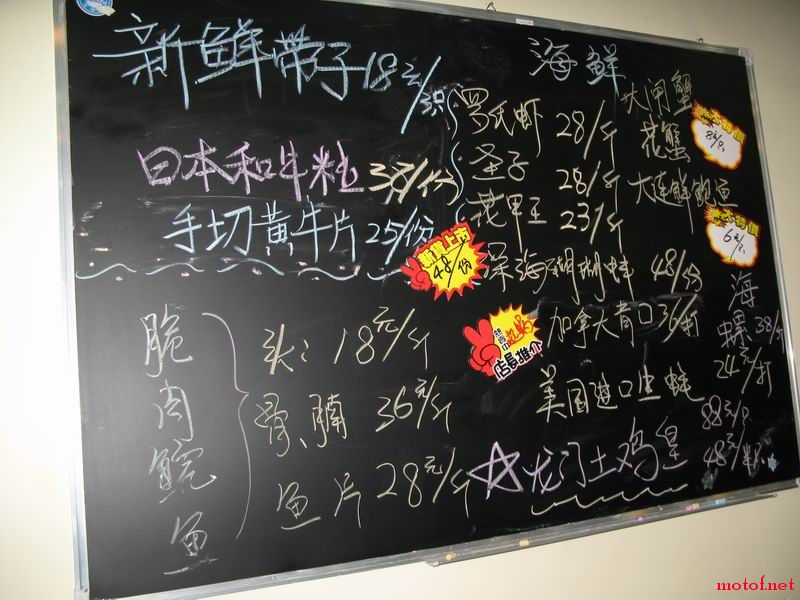 新鲜带子18元/只
日本和牛粒38/份
手切黄牛片25/份
新鲜上市
48/份
脆肉鲩鱼
头：18元/斤
骨、腩 36元/斤
鱼片 28元/斤
海鲜
罗氏虾 28/斤
圣子 28/斤
花甲王 23/斤
深海珊瑚蚌 48/份
店長推介
加拿大青口 36/打
美国進口生蚝 24元/打
☆龙门土鸡皇 88元/只
48元/半只
大闸蟹
花蟹
8元/只
大连鲜鲍鱼
6元/只
海螺 38/斤
motof.net